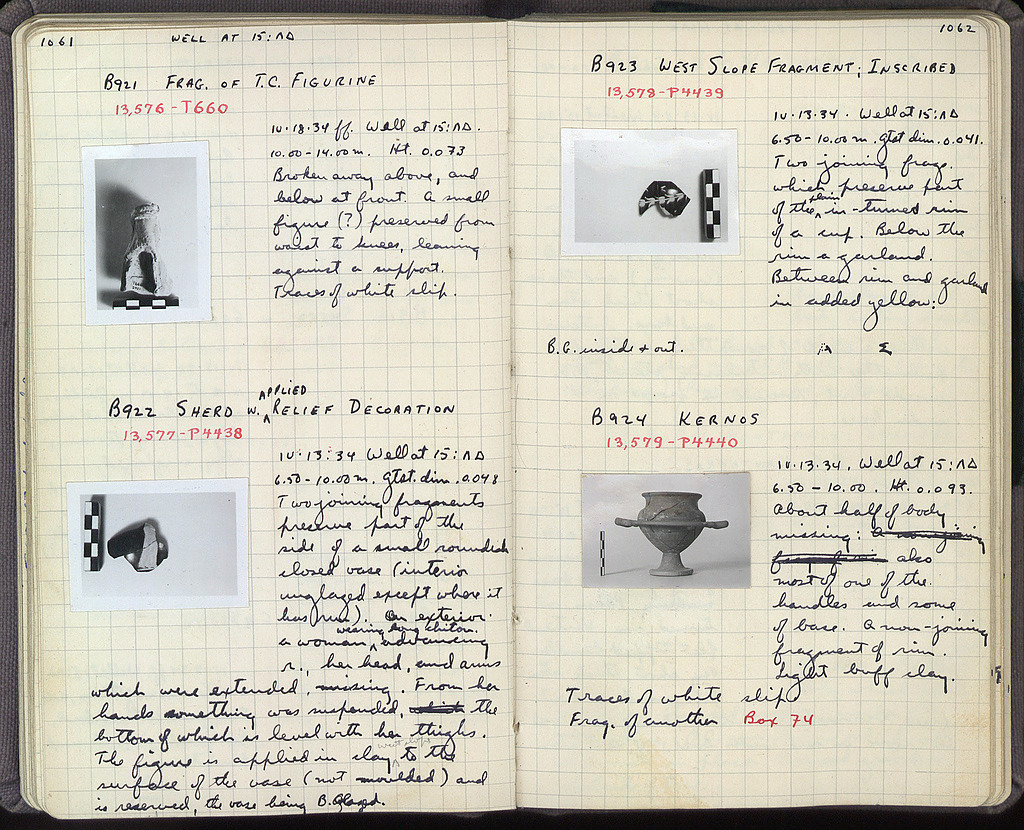 1061 WELL AT 15:ΛΔ
B921 FRAG. OF T.C. FIGURINE
13,576-T660
IV.18.34 ff. Well at 15:ΛΔ.
10.00-14.00 m. Ht. 0.073
Broken away above, and
below at front. A small
figure (?) preserved from
waist to knees, leaning
against a support.
Traces of white slip.
B922 SHERD W. APPLIED RELIEF DECORATION
13,577-P4438
IV.13.34 Well at 15:ΛΔ
6.50-10.00 m. gtst. dim. 0.048
Two joining fragments
preserve part of the
side of a small roundish
closed vase (interior
unglazed except where it
has run). On exterior:
a woman, wearing long chiton, advancing
r., her head, and arms
which were extended, missing. From her
hands something was suspended, which the
bottom of which is level with her thighs.
The figure is applied in clay to the
surface of the vase (not moulded) and
is reserved, the vase being B. Glazed.
1062
B923 WEST SLOPE FRAGMENT; INSCRIBED
13,578-P4439
IV.13.34. Well at 15:ΛΔ
6.50-10.00 m. gtst dim. 0.041.
Two joining frags.
which preserve part
of the plain in-turned rim
of a cup. Below the
rim a garland.
Between rim and garland
in added yellow:
B.G. inside + out. A Σ
B924 KERNOS
13,579-P4440
IV.13.34. Well at 15:ΛΔ
6.50-10.00. Ht. 0.093.
About half of body
missing: A non-joining
also
most of one of the
handles and some
of base. A non-joining
fragment of rim.
Light buff clay.
Traces of white slip
Frag. of another Box 74